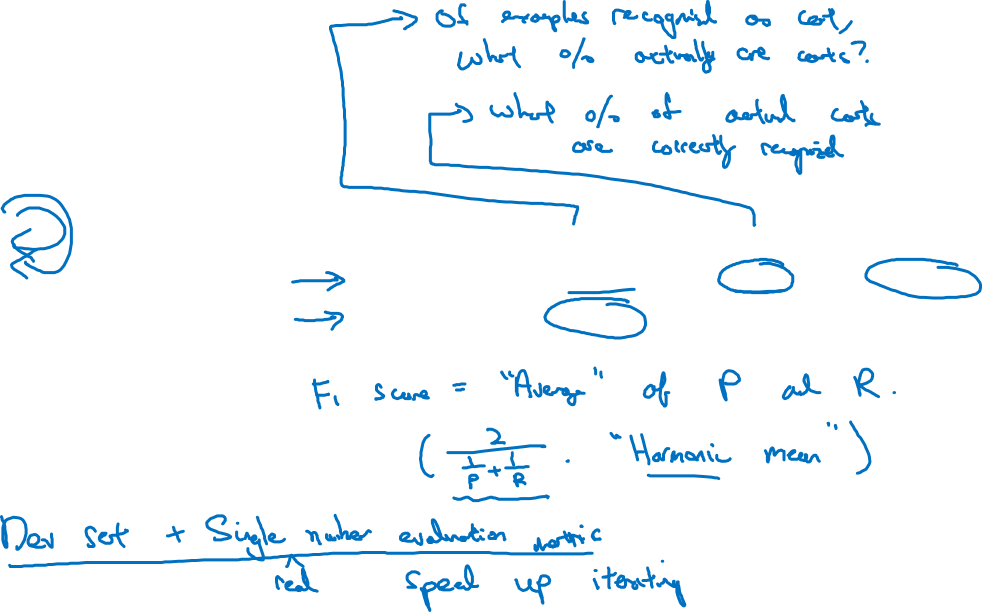 Of examples recognized as cat,
what % actually are cats?
what % of actual cats
are correctly recognized
F₁ score = "Average" of P and R.
( 2 / (1/P + 1/R) . "Harmonic mean" )
Dev set + Single number evaluation metric
real speed up iterating